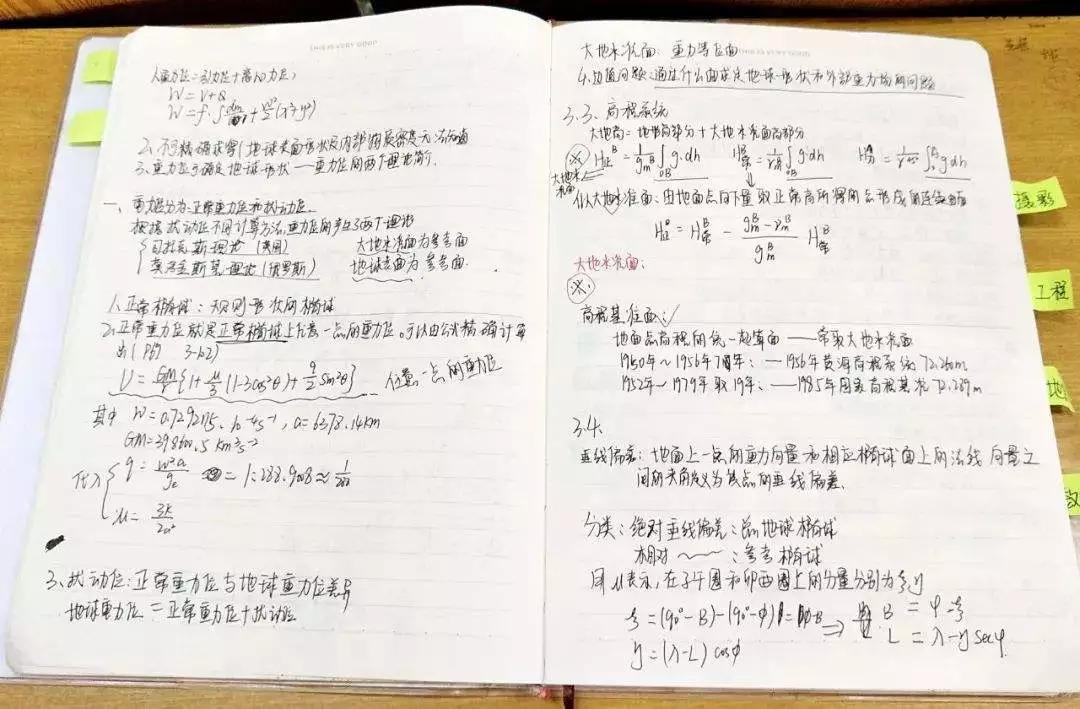 THIS IS VERY GOOD
1.重力位=引力位+离心力位,
W=V+Q
W=f·∫dm/r+ω²/2(x²+y²)
2.不可精确求得(地球表面形状及内部物质密度无法知道
3.重力位与确定地球形状——重力位的两个理论简介.
一、重力位分为:正常重力位和扰动位.
根据扰动位不同计算方法,重力位的导出了两个理论
司托克斯理论(英国) 大地水准面为参考面
莫洛金斯基理论(俄罗斯) 地球表面为参考面.
1.正常椭球:规则形状的椭球
2.正常重力位就是正常椭球上任意一点的重力位.可以由公式精确计算
出(P的 3-62)
U=GM/a{1+μ/3(1-3cos²θ)+q/2 sin²θ} 任意一点的重力位
其中 W=0.7292115.10⁻⁴s⁻¹,a=6378.14km
GM=398600.5 km³s⁻²
代入 q=w²a/ge =1:288.9008≈
μ=3K/2a²
3、扰动位:正常重力位与地球重力位差异
地球重力位=正常重力位+扰动位
大地水准面:重力等位面
THIS IS VERY GOOD
4.边值问题:通过什么面求定地球形状和外部重力场的问题
3.3.高程系统
大地高=地形高部分+大地水准面高部分
H正ᴮ=1/gmᴮ∫oB g·dh H常ᴮ=1/γmᴮ∫oB g·dh H力ᴮ=1/γ45°∫oB g dh
大地水准面
似大地水准面:由地面点向下量取正常高所得的点形成的连续曲面
H正ᴮ=H常ᴮ-(gmᴮ-γmᴮ)/gmᴮ H常ᴮ
大地水准面:
※.
高程基准面:√
地面点高程的统一起算面——常取大地水准面
1950年~1956年7年:——1956年黄海高程系统72.260m
1952年~1979年取19年:——1985年国家高程基准72.289m
3.4.
垂线偏差:地面上一点的重力向量和相应椭球面上的法线向量之
间的夹角定义为该点的垂线偏差.
分类:绝对垂线偏差:总地球椭球
相对~~:参考椭球
用u表示,在子午圈和卯酉圈上的分量分别为ξ,η
ξ=(90°-B)-(90°-φ)=φ-B ⇒ B=φ-ξ
η=(λ-L)cosφ L=λ-ηsecφ
摄影
工程
地